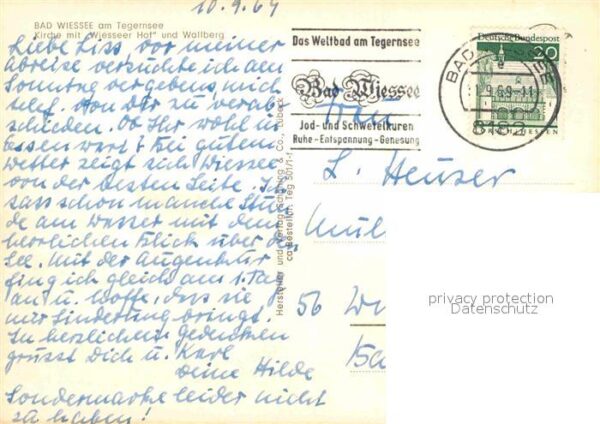 10.9.69
BAD WIESSEE am Tegernsee
Kirche mit "Wiesseer Hof" und Wallberg
Liebe Liss, vor meiner
Abreise versuchte ich am
Sonntag vergebens, mich
telef. von Dir zu verab-
schieden. Ob Ihr wohl in
Essen wart? Bei gutem
Wetter zeigt sich Wiessee
von der besten Seite. Ich
sass schon manche Stun-
de am Wasser mit dem
herrlichen Blick über den
See. Mit der Augenkur
fing ich gleich am 1. Tag
an u. hoffe, dass sie
mir Linderung bringt.
In herzlichem Gedenken
grüsst Dich u. Karl
deine Hilde
Sondermarke leider nicht
zu haben!
Hersteller und Verlag Schöning & Co., Lübeck
Bestellnr. Teg 501/1-1
Das Weltbad am Tegernsee
Bad Wiessee
Jod- und Schwefelkuren
Ruhe-Entspannung-Genesung
BAD WIESSEE
9.69-11
8182
Deutsche Bundespost
20
Frau
L. Heuser
56
privacy protection
Datenschutz